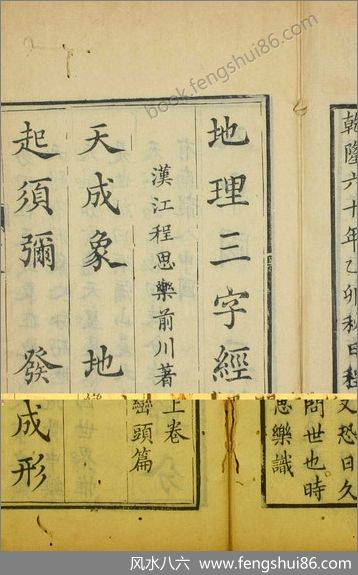 book.fengshui86.com
乾隆六十年乙卯秋日程
地理三字經
漢江程思樂前川著
天成象 地
起須彌 發
又恐日久
問世也時
思樂識
上卷
巒頭篇
成形
风水八六 www.fengshui86.com